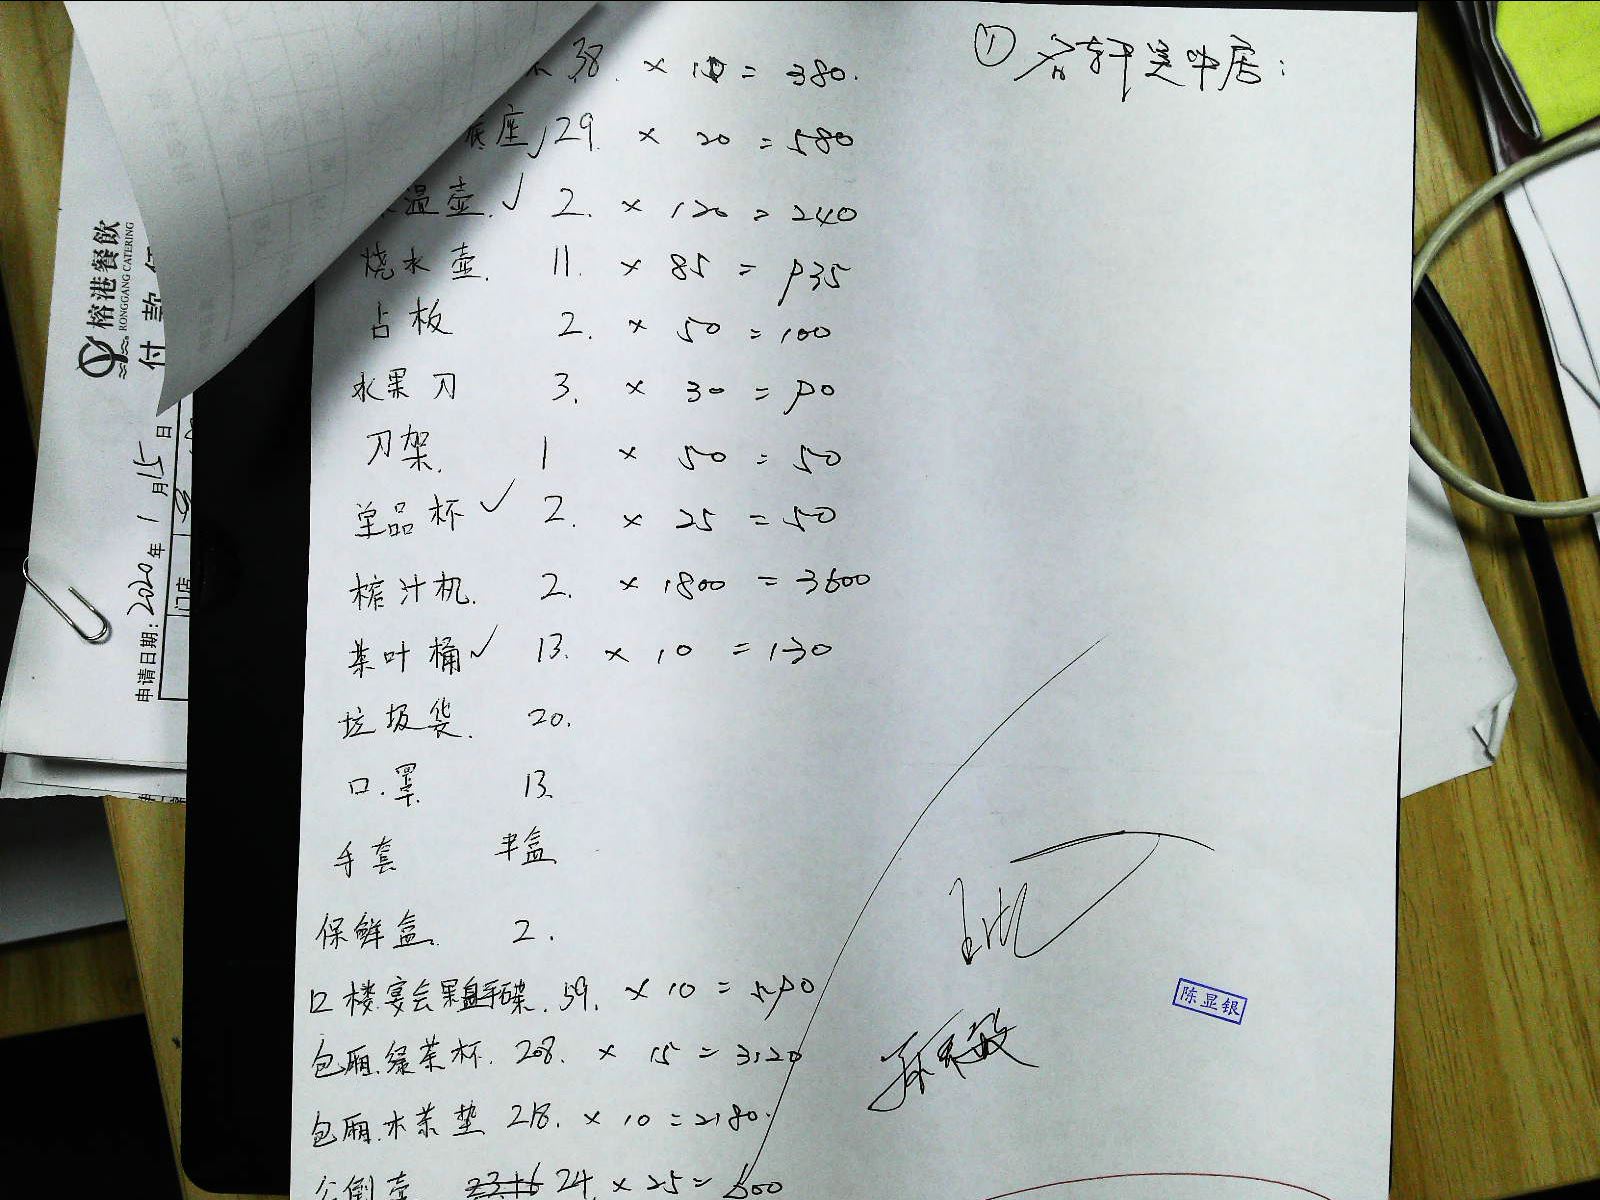 38. × 10 = 380.
底座√ 29. × 20 = 580
温壶.√ 2. × 120 = 240
烧水壶. 11. × 85 = 935
占板 2. × 50 = 100
水果刀 3. × 30 = 90
刀架. 1 × 50 = 50
单品杯√ 2. × 25 = 50
榨汁机. 2. × 1800 = 3600
茶叶桶√ 13. × 10 = 130
垃圾袋. 20.
口罩 13.
手套 半盒
保鲜盒. 2.
楼宴会果盘手碟. 59. × 10 = 590
包厢.绿茶杯. 208. × 15 = 3120
包厢.木茶垫 218. × 10 = 2180.
公倒壶 24. × 25 = 600
① 轩 居:
陈显银
榕港餐飲
RONGGANG CATERING
付款
申请日期: 2020年1月15日
门店